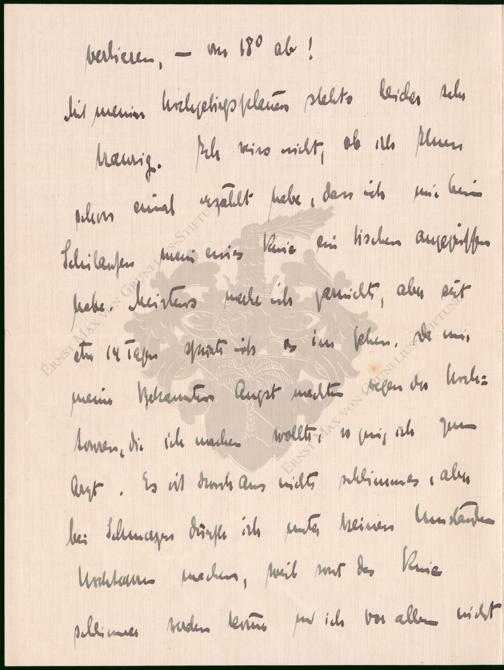 verlieren, – von 18° ab!
Mit meinen Hochgebirgsplänen stehts leider sehr
traurig. Ich weiss nicht, ob ich Ihnen
schon einmal erzählt habe, dass ich mir beim
Schilaufen mein eines Knie ein bischen angegriffen
habe. Meistens merke ich garnichts, aber seit
etwa 14 Tagen spürte ich es im Gehen. Da mir
meine Bekannten Angst machten wegen der Hoch=
touren, die ich machen wollte, so ging ich zum
Arzt. Es ist durchaus nichts schlimmes, aber
bei Schmerzen dürfte ich unter keinen Umständen
Hochtouren machen, weil sonst das Knie
schlimmer werden könne und ich vor allem nicht
ERNST MAX VON GRUNELIUS-STIFTUNG
ERNST MAX VON GRUNELIUS-STIFTUNG